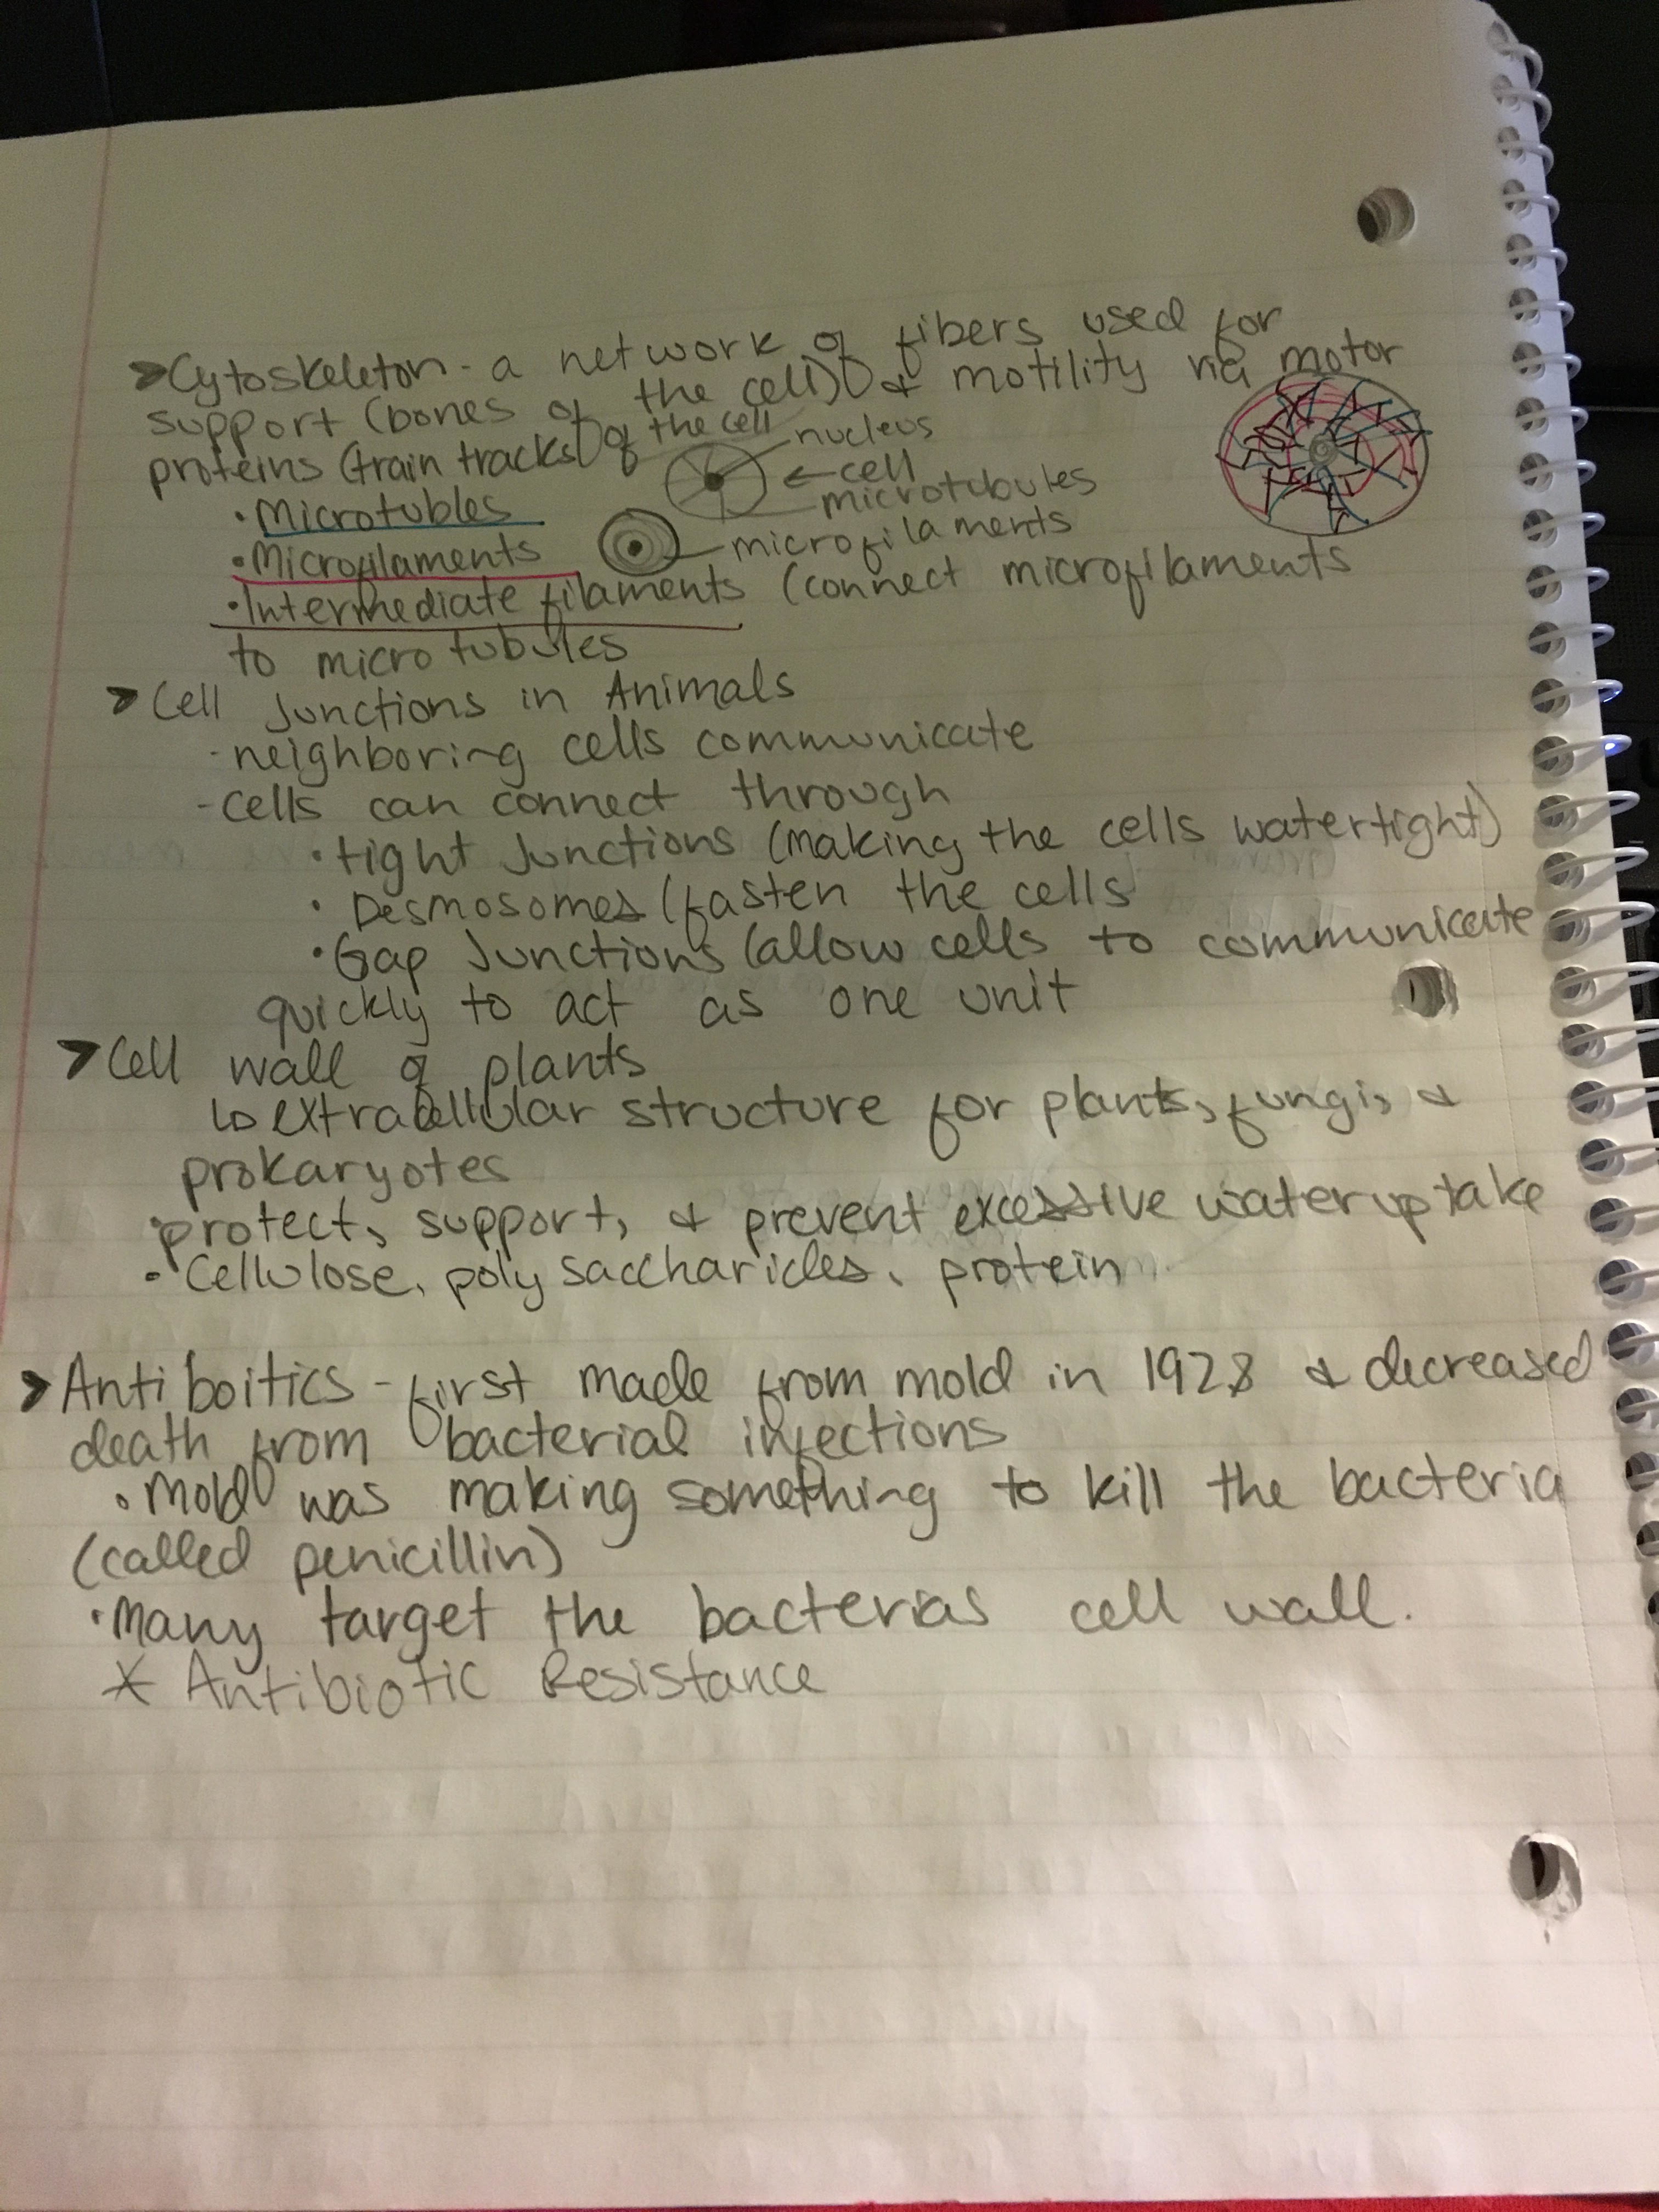 ➤Cytoskeleton - a network of fibers used for
support (bones of the cell) & motility via motor
proteins (train tracks) of the cell
nucleus
←cell
microtubules
• Microtubles
microfilaments
• Microfilaments
• Intermediate filaments (connect microfilaments
to microtubules
➤ Cell Junctions in Animals
- neighboring cells communicate
- cells can connect through
• tight Junctions (making the cells watertight)
• Desmosomes (fasten the cells
• Gap Junctions (allow cells to communicate
quickly to act as one unit
➤ Cell wall of plants
↳ extracellular structure for plants, fungi, &
prokaryotes
• protect, support, & prevent excessive water uptake
• Cellulose, polysaccharides, protein
➤ Antiboitics - first made from mold in 1928 & decreased
death from bacterial infections
• Mold was making something to kill the bacteria
(called penicillin)
• Many target the bacterias cell wall.
* Antibiotic Resistance